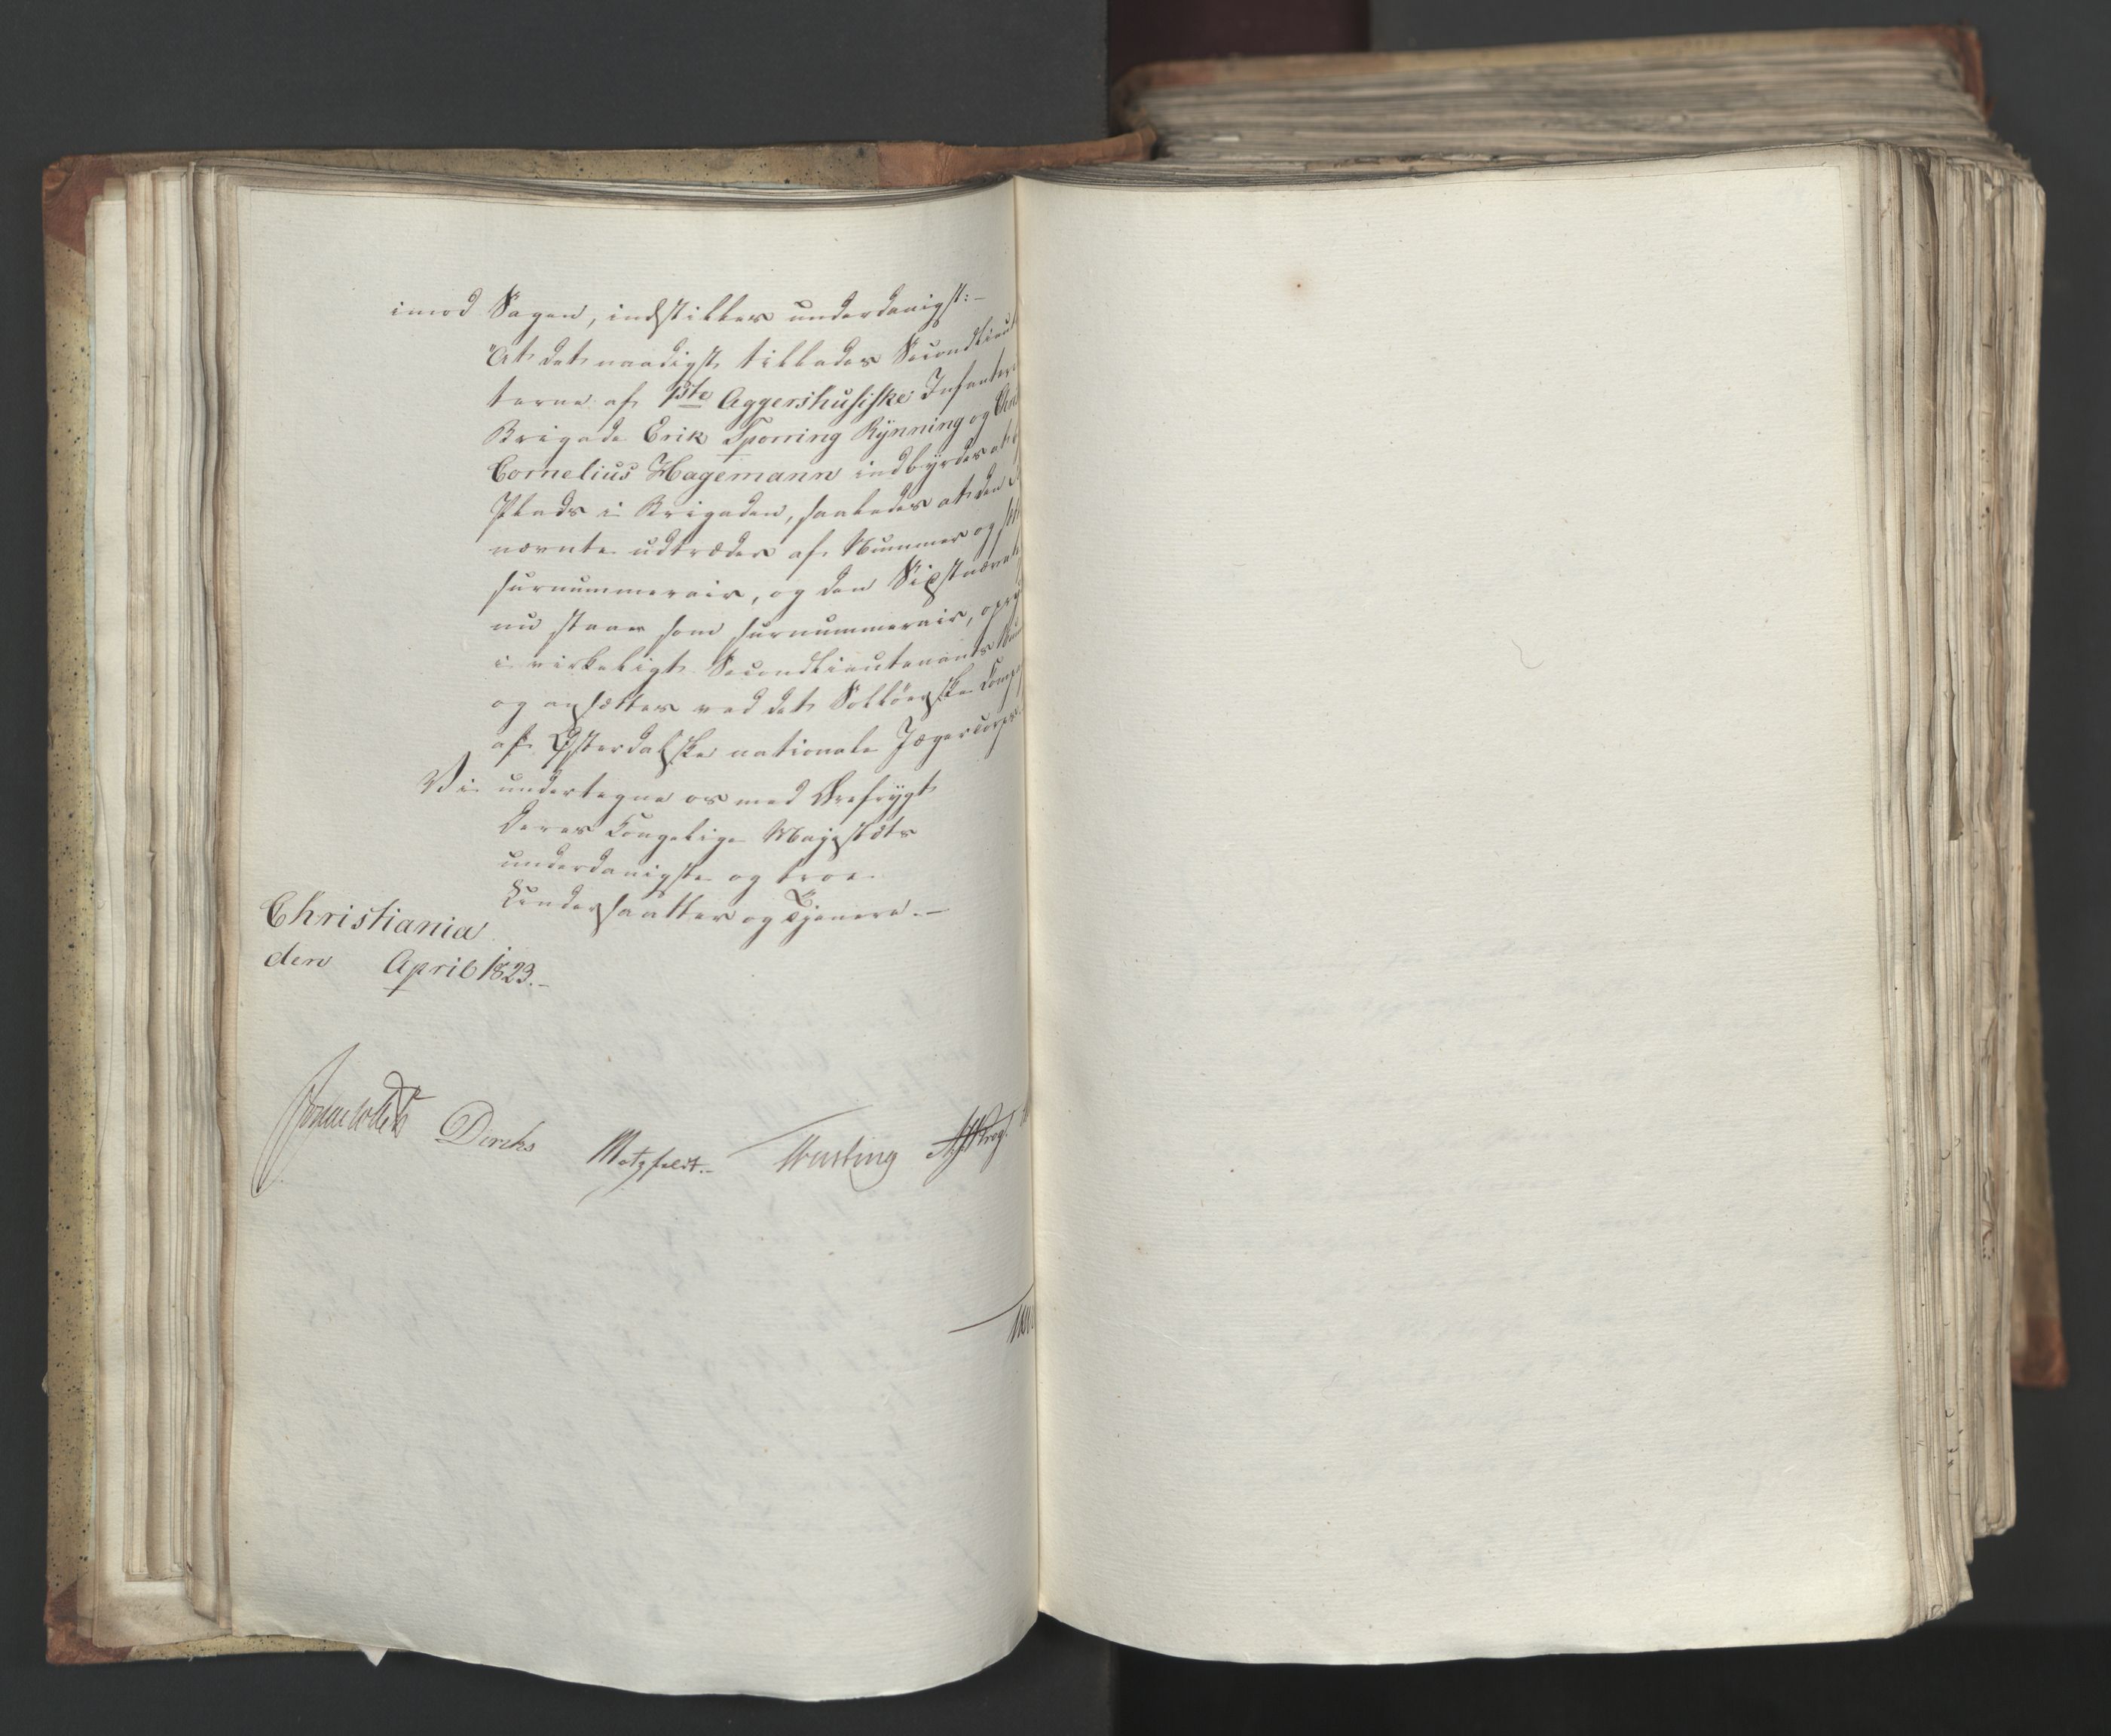 imod Sagen, indstilles underdanigst:-
"At det naadigst tillades Secondlieut
terne af 1ste Aggershusiske Infanteri
Brigade Erik Sporring Rÿnning og
Cornelius Hagemann indbÿrdes at
Plads i Brigaden, saaledes at den
nævnte udtræder af Nummer og
surnummerair, og den Sidstnævnte
nu staaer som surnummerair, oprÿ
i virkeligt Secondlieutenants Num
og ansættes ved det Solløerske Comp
af Østerdalske nationale Jægercorps.
Vi undertegne os med Ærefrÿgt
Deres Kongelige Majestæts
underdanigste og troe
Undersaatter og Tjenere.-
Christiania
den April 1823.-
Sommerhielm Diriks Motzfeldt.- Krogh